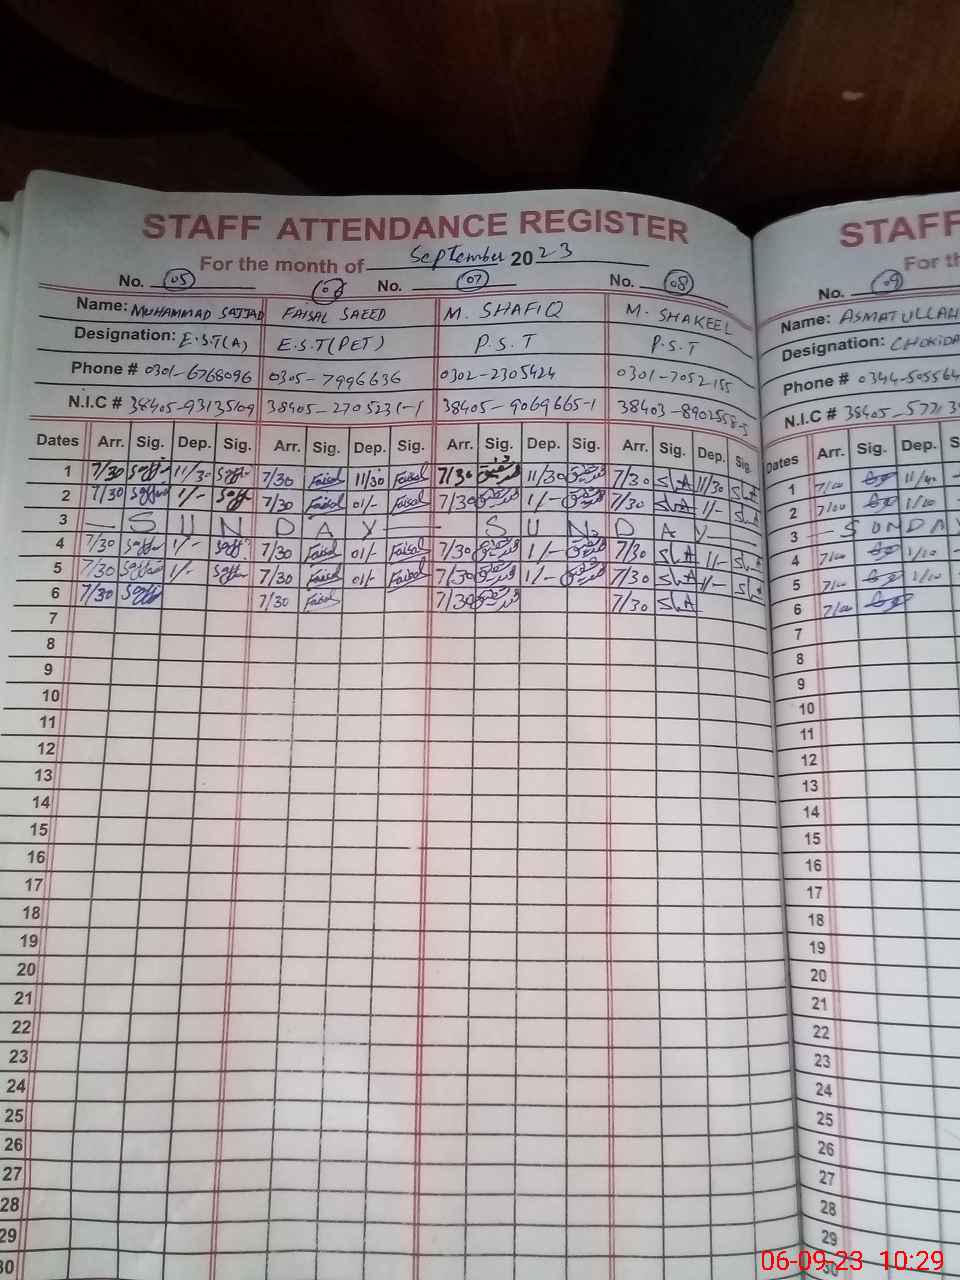 STAFF ATTENDANCE REGISTER
For the month of September 2023
No. 05 06 No. 07 No. 08
Name: MUHAMMAD SAJJAD FAISAL SAEED M. SHAFIQ M. SHAKEEL
Designation: E.S.T(A) E.S.T(PET) P.S.T P.S.T
Phone # 0301-6768096 0305-7996636 0302-2305424 0301-7052155
N.I.C # 38405-2705231-1 38405-9069665-1 38403-8902558-3
Dates Arr. Sig. Dep. Sig. Arr. Sig. Dep. Sig. Arr. Sig. Dep. Sig. Arr. Sig. Dep. Sig.
1 7/30 11/30 7/30 Faisal 11/30 Faisal 7/30 11/30 7/30 Sh.A 11/30 Sh.A
2 7/30 1/- 7/30 Faisal 01/- Faisal 7/30 1/- 7/30 Sh.A 1/- Sh.A
3 — S U N D A Y — S U N D A Y —
4 7/30 1/- 7/30 Faisal 01/- Faisal 7/30 1/- 7/30 Sh.A 1/- Sh.A
5 7/30 1/- 7/30 Faisal 01/- Faisal 7/30 1/- 7/30 Sh.A 1/- Sh.A
6 7/30 7/30 Faisal 7/30 7/30 Sh.A
7
8
9
10
11
12
13
14
15
16
17
18
19
20
21
22
23
24
25
26
27
28
29
30
STAFF
For th
No. 09
Name: ASMATULLAH
Designation: CHOKIDA
Phone # 0344-505564
N.I.C # 38405-
Dates Arr. Sig. Dep.
1 7/00 11/40
2 7/00 1/10
3 — S U N D A Y
4 7/00 1/10
5 7/00 1/10
6 7/00
7
8
9
10
11
12
13
14
15
16
17
18
19
20
21
22
23
24
25
26
27
28
29
30
06-09-23 10:29